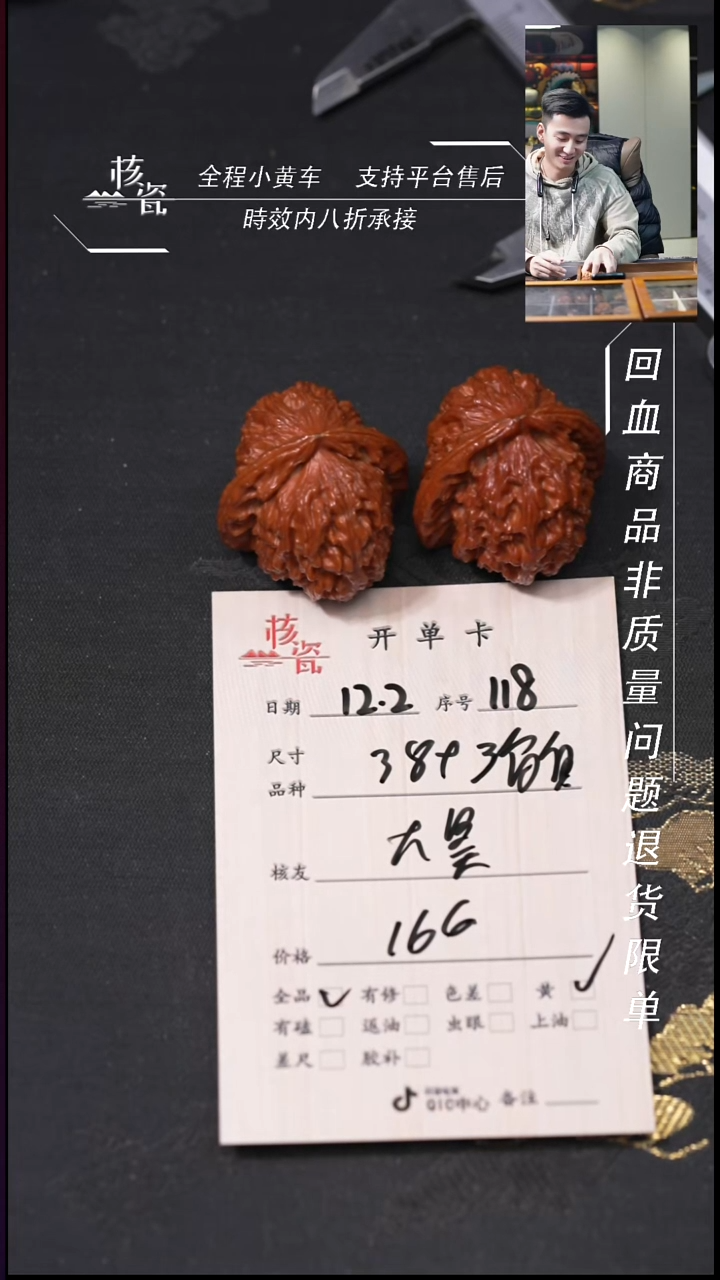 核瓷
全程小黄车 支持平台售后
時效内八折承接
回血商品非质量问题退货限单
核瓷
开单卡
日期 12.2 序号 118
尺寸
品种 38+
核友 大昊
价格 166
全品 有修 色差 黄
有磕 返油 虫眼 上油
差尺 胶补
QIC中心 备注